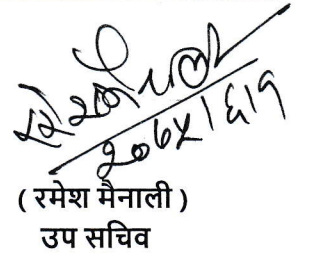 २०७५।६।१
( रमेश मैनाली )
उप सचिव